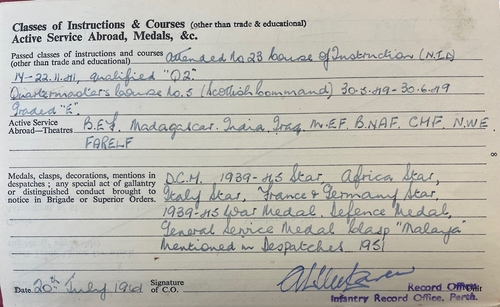 Classes of Instructions & Courses (other than trade & educational)
Active Service Abroad, Medals, &c.
Passed classes of instructions and courses attended No 23 Course of Instruction (N.I.D)
(other than trade and educational)
14-22.11.41, qualified "Q2".
Quartermasters Course No. 5 (Scottish Command) 30-5-49-30-6-49
Graded "E".
Active Service B.E.F, Madagascar. India, Iraq, M.EF. B.NAF. CMF. N.W.E.
Abroad—Theatres
FARELF
Medals, clasps, decorations, mentions in D.C.M. 1939-45 Star, Africa Star,
despatches; any special act of gallantry
or distinguished conduct brought to Italy Star, France & Germany Star
notice in Brigade or Superior Orders.
1939-45 War Medal, Defence Medal,
General Service Medal Clasp "Malaya"
Mentioned in Despatches 1951
8
Date 20th July 1961 Signature
of C.O.
Record Office
Infantry Record Office, Perth.